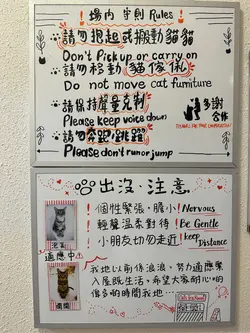 場內守則Rules
請勿抱起或搬動貓貓
Don't Pick up or carry on
請勿移動貓傢俬
Do not move cat furniture
請保持聲量克制
Please keep voice down
請勿奔跑/跳躍
Please don't run or jump
多謝
合作
出沒注意
! 個性緊張、膽小! Nervous
! 輕聲溫柔對待! Be Gentle
! 小朋友切勿走近! keep
Distance
適應中
我地以前係浪浪,努力適應緊
入屋既生活,希望大家耐心啲
俾多啲時間我地……